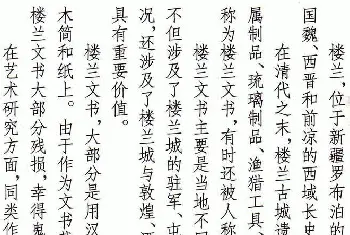 楼兰，位于新疆罗布泊的
国魏、西晋和前凉的西域长史
在清代之末，楼兰古城遗
属制品、琉璃制品、渔猎工具、
称为楼兰文书，有时还被人称
楼兰文书主要是当地不
不但涉及了楼兰城的驻军、屯
况，还涉及了楼兰城与敦煌、
具有重要价值。
楼兰文书，大部分是用汉
木简和纸上。由于作为文书
楼兰文书大部分残损，幸得鬼
在艺术研究方面，同类作